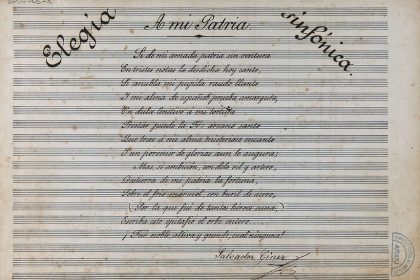 Elegía sinfónica.
A mi Patria
Si de mi amada patria sin ventura
En tristes notas la desdicha hoy canto,
Si anubla mi pupila raudo llanto
Y mi alma de español prueba amargura,
En dulce lenitivo á mi
Prestar puede la Fe: corano canto
Que trae á mi alma misterioso encanto
Y un porvenir de glorias aun le augura;
Mas, si ambición, con dolo vil y artero,
Destierra de mi patria la fortuna,
Sobre el frio mármol, con buril de acero,
(Por la que fué de tantos héroes cuna,)
Escriba este epitafio el orbe entero:
¡Fué noble, altiva y grande, cual ninguna!
Salvador Giner